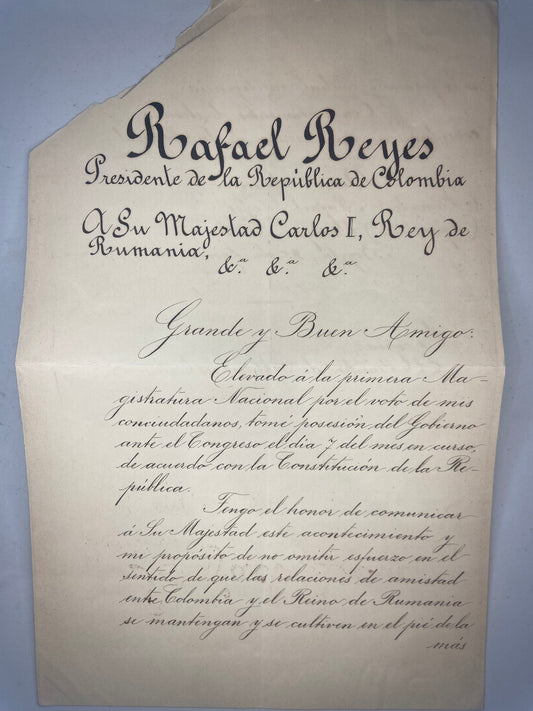 Rafael Reyes
Presidente de la República de Colombia
A Su Majestad Carlos I, Rey de
Rumania,
&.ª &.ª &.ª
Grande y Buen Amigo:
Elevado á la primera Ma-
gistratura Nacional por el voto de mis
conciudadanos, tomé posesión del Gobierno
ante el Congreso el día 7 del mes en curso,
de acuerdo con la Constitución de la Re-
pública.
Tengo el honor de comunicar
á Su Majestad este acontecimiento y
mi propósito de no omitir esfuerzo en el
sentido de que las relaciones de amistad
entre Colombia y el Reino de Rumania
se mantengan y se cultiven en el pié de la
más